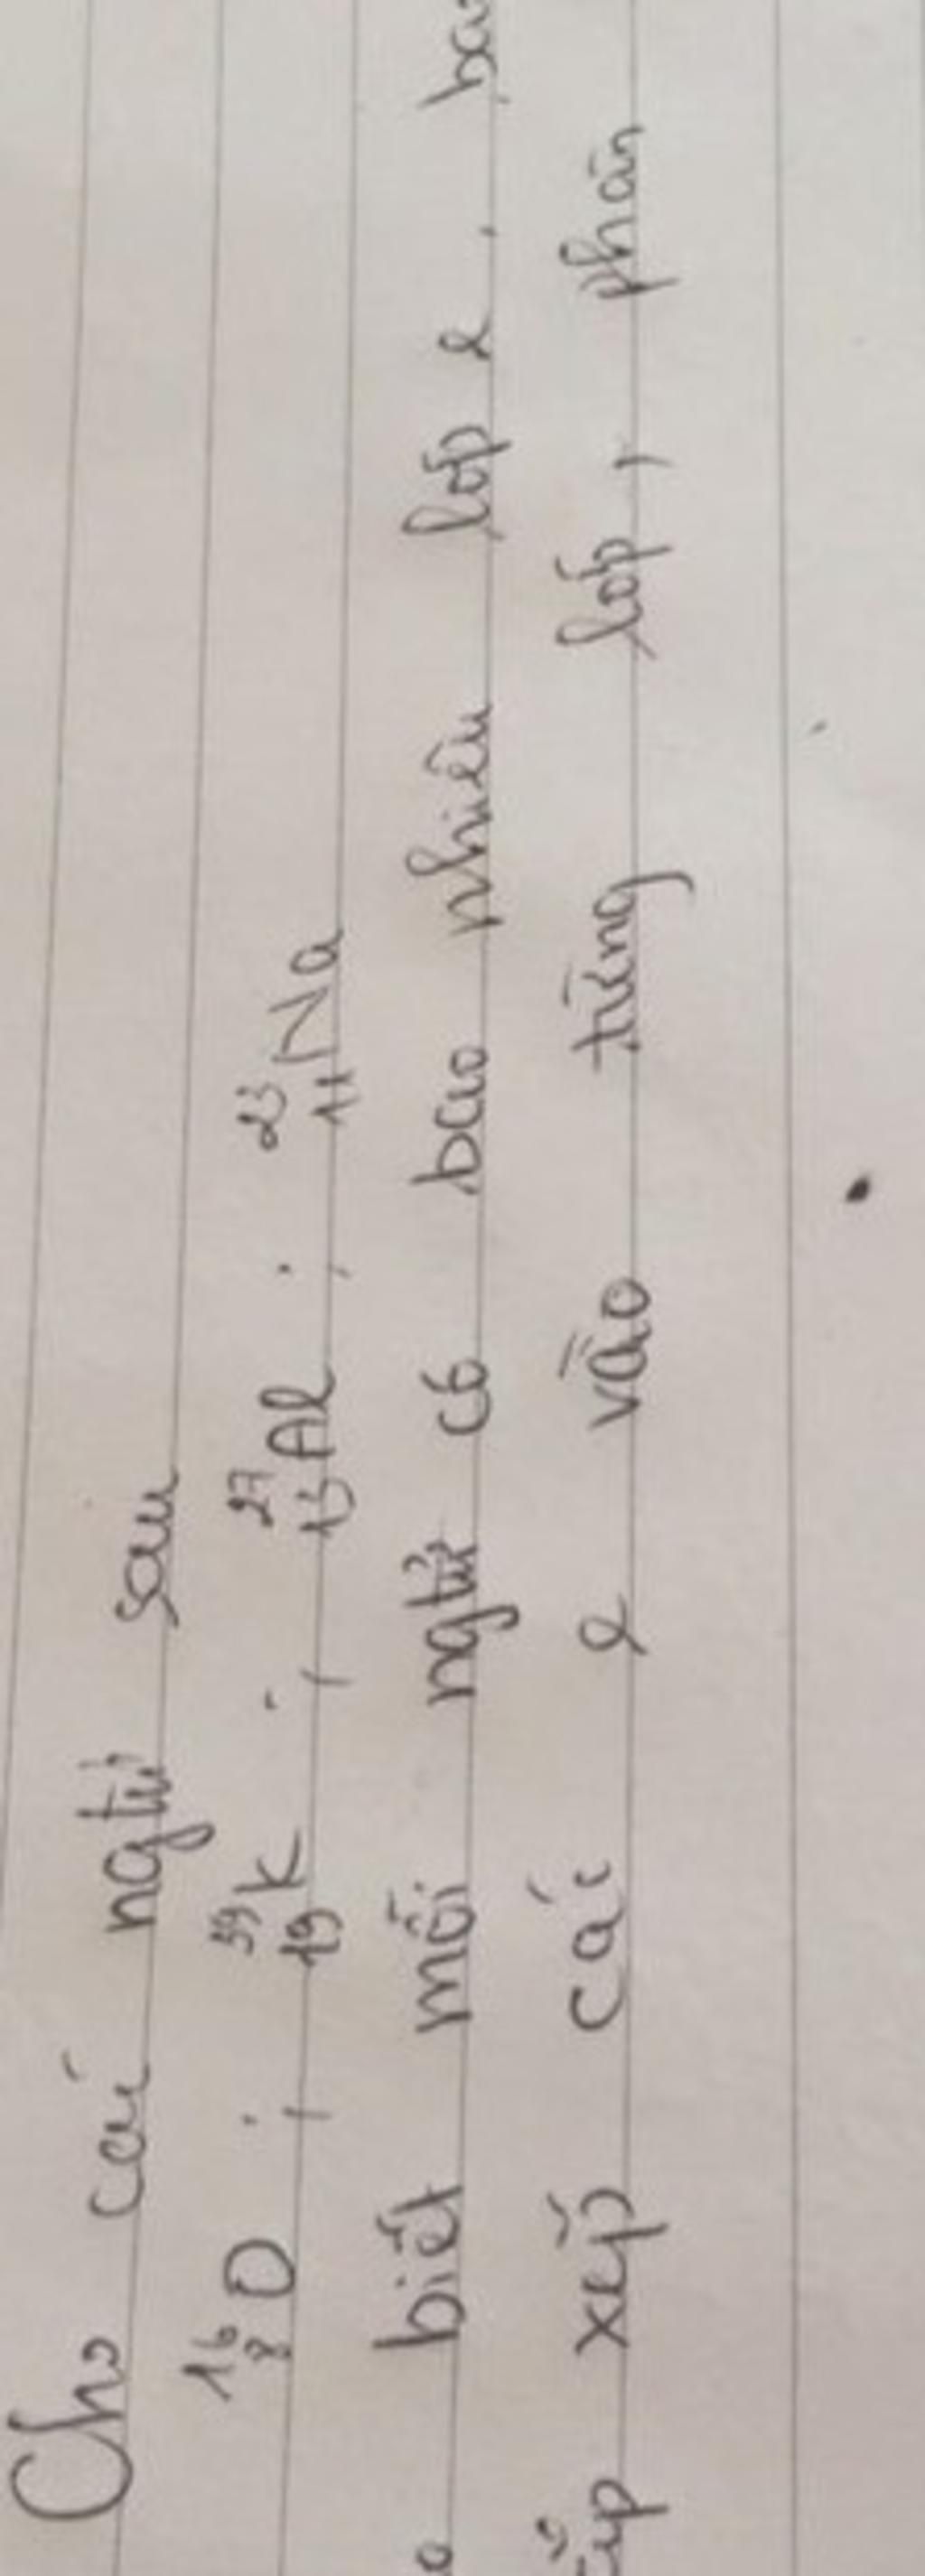 Cho các ngtử sau
¹⁶₈O ; ³⁹₁₉K ; ²⁷₁₃Al ; ²³₁₁Na
biết mỗi ngtử có bao nhiêu lớp e,
xếp các e vào từng lớp, phân